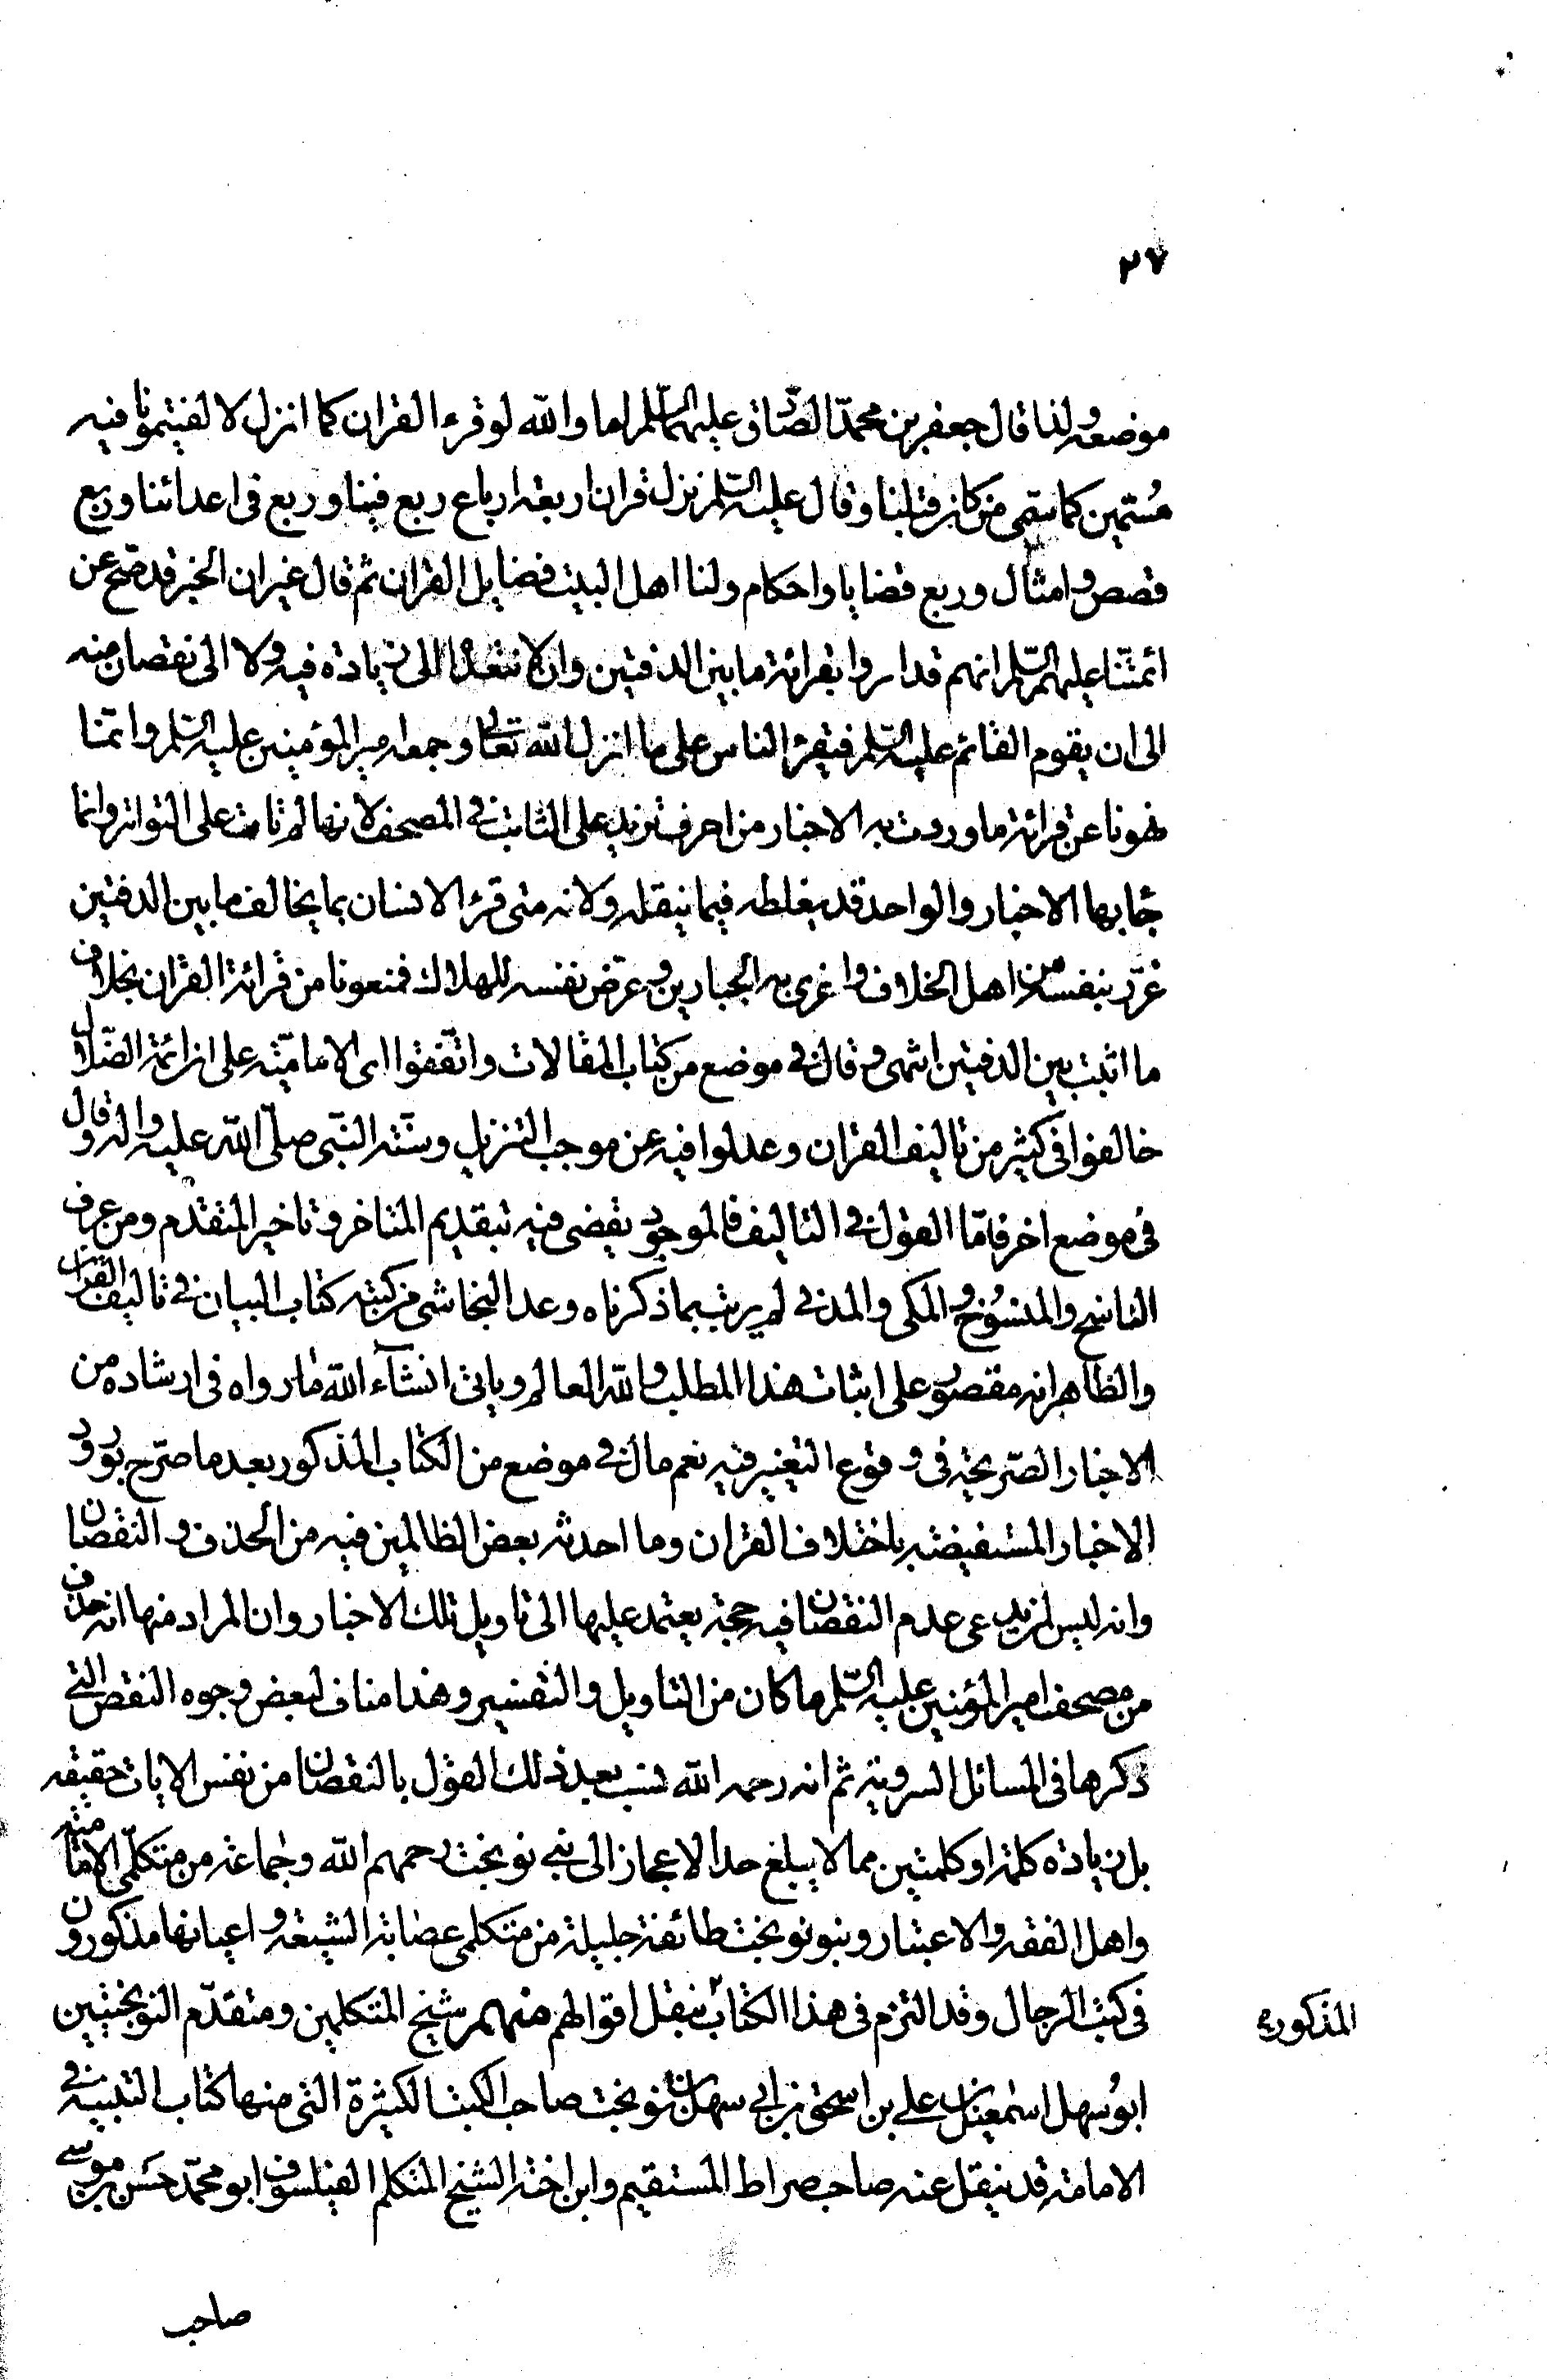 ٢٧
موضعه ولذا قال جعفر بن محمد الصادق عليهما السلم اما والله لو قرء القران كما انزل لالفيتمونا فيه
مُسَمّين كما سمى من كان قبلنا وقال عليه السلم نزل قران اربعة ارباع ربع فينا وربع فى اعدائنا وربع
قصص وامثال وربع قضايا واحكام ولنا اهل البيت فضايل القران ثم قال غير ان الخبر قد صح عن
ائمتنا عليهم السلم انهم قد امروا بقرائة ما بين الدفتين وان لا نتعداه الى زيادة فيه ولا الى نقصان منه
الى ان يقوم القائم عليه السلم فيقرء الناس على ما انزل الله تعالى وجمعه امير المؤمنين عليه السلم وانما
نهونا عن قرائة ما وردت به الاخبار من احرف تزيد على الثابت فى المصحف لانها لم تات على التواتر وانما
جاء بها الاخبار والواحد قد يغلط فيما ينقله ولانه متى قرء الانسان بما يخالف ما بين الدفتين
غرّر بنفسه من اهل الخلاف واغرى به الجبارين وعرّض نفسه للهلاك فمنعونا من قرائة القران بخلاف
ما اثبت بين الدفتين انتهى وقال فى موضع من كتاب المقالات واتفقوا اى الامامية على ان ائمة الضلال
خالفوا فى كثير من تاليف القران وعدلوا فيه عن موجب التنزيل وسنة النبى صلى الله عليه واله وقال
فى موضع اخر فامّا القول فى التاليف فالموجود يقضى فيه بتقديم المتاخر وتاخير المتقدم ومن عرف
الناسخ والمنسوخ والمكى والمدنى لم يرتب بما ذكرناه وعد النجاشى من كتبه كتاب البيان فى تاليف القران
والظاهر انه مقصور على اثبات هذا المطلب والله العالم وياتى انشآء الله ما رواه فى ارشاده من
الاخبار الصّريحة فى وقوع التغيير فيه نعم مال فى موضع من الكتاب المذكور بعد ما صرّح بورود
الاخبار المستفيضة باختلاف القران وما احدثه بعض الظالمين فيه من الحذف والنقصان
وانه ليس لمن يدعى عدم النقصان فيه حجة يعتمد عليها الى تاويل تلك الاخبار وان المراد منها انه حذف
من مصحف امير المؤمنين عليه السّلم ما كان من التاويل والتفسير وهذا مناف لبعض وجوه النقص التى
ذكرها فى المسائل السروية ثم انه رحمه الله نسب بعد ذلك القول بالنقصان من نفس الايات حقيقة
بل زيادة كلمة او كلمتين مما لا يبلغ حد الاعجاز الى بنى نوبخت رحمهم الله وجماعة من متكلّمى الامامية
واهل الفقه والاعتبار وبنو نوبخت طائفة جليلة من متكلمى عصابة الشيعة واعيانها مذكورون
فى كتب الرجال وقد التزم فى هذا الكتاب بنقل اقوالهم منهم شيخ المتكلمين ومتقدّم النوبختيين
المذكور
ابو سهل اسمعيل بن على بن اسحق بن ابى سهل بن نوبخت صاحب الكتب الكثيرة التى منها كتاب التنبيه فى
الامامة قد ينقل عنه صاحب صراط المستقيم وابن اخته الشيخ المتكلم الفيلسوف ابو محمّد حسن بن موسى
صاحب